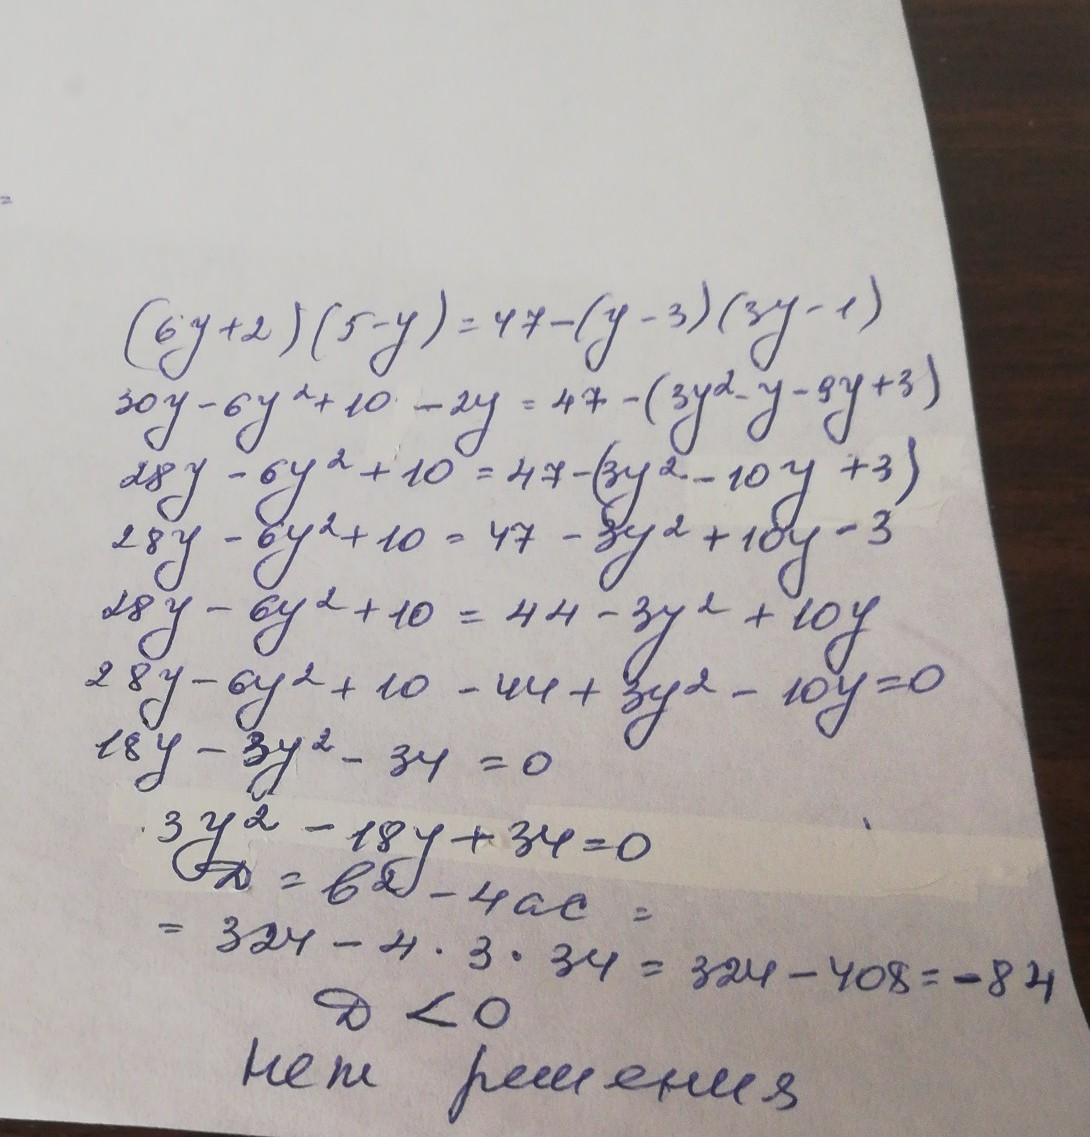 =
(6y+2)(5-y)=47-(y-3)(3y-1)
30y-6y²+10-2y=47-(3y²-y-9y+3)
28y-6y²+10=47-(3y²-10y+3)
28y-6y²+10=47-3y²+10y-3
28y-6y²+10=44-3y²+10y
28y-6y²+10-44+3y²-10y=0
18y-3y²-34=0
3y²-18y+34=0
D=b²-4ac=
=324-4·3·34=324-408=-84
D<0
нет решения